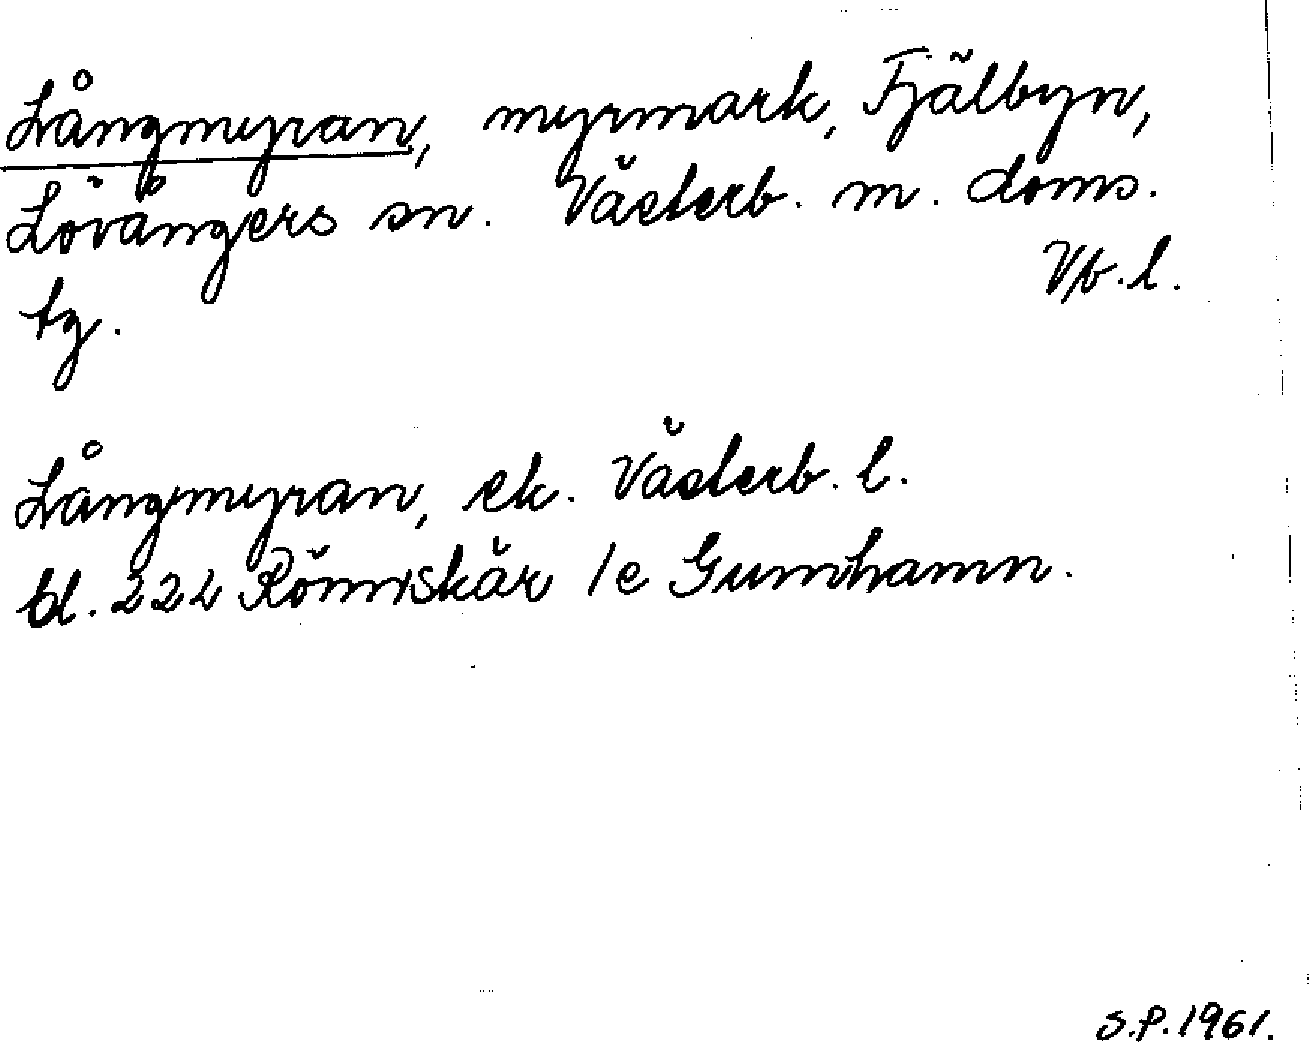 Långmyran, myrmark, Fjälbyn,
Lövångers sn. Västerb. m. doms.
tg. Vb. l.
Långmyran, ek. Västerb. l.
bl. 222 Rönnskär 1e Gumhamn.
S.P. 1961.